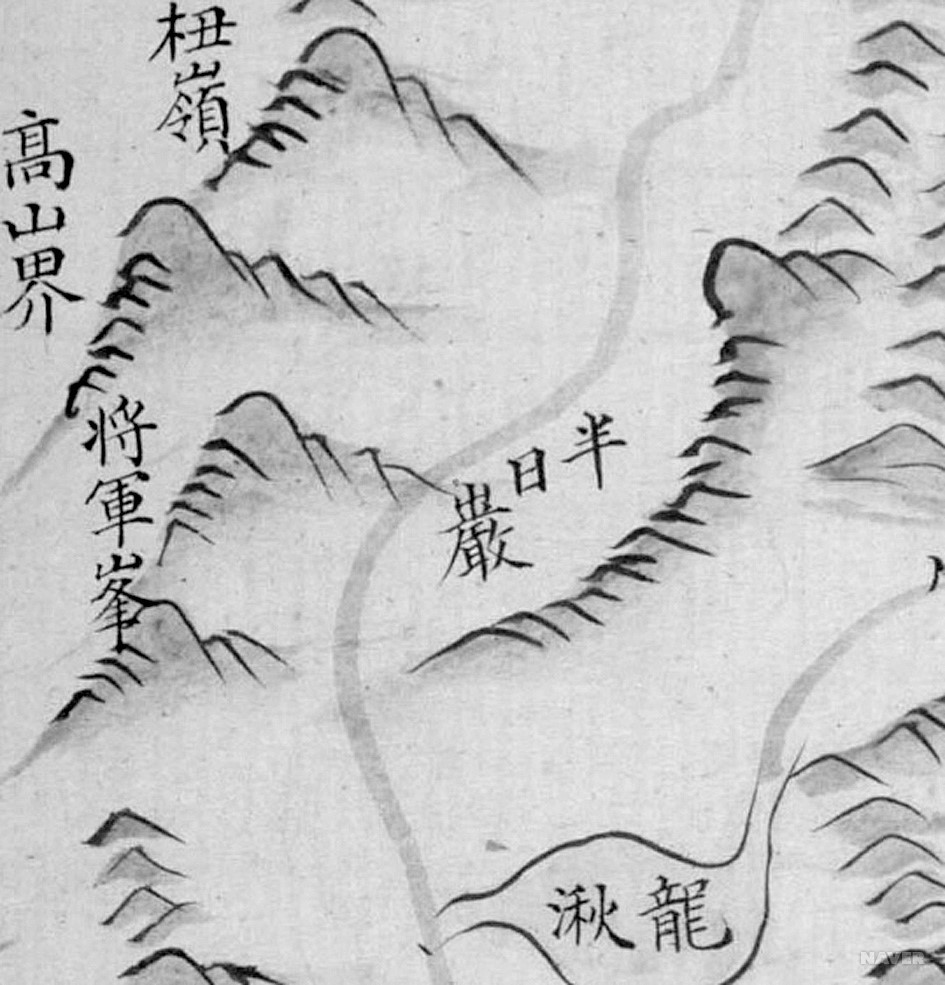 杻嶺
高山界
将軍峯
半日巖
龍湫
NAVER